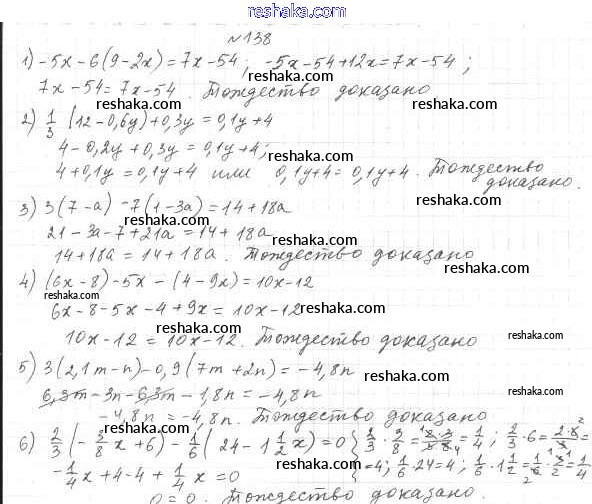 reshaka.com
№138
1) -5x-6(9-2x)=7x-54; -5x-54+12x=7x-54;
reshaka.com reshaka.com
7x-54=7x-54. Тождество доказано
reshaka.com reshaka.com
2) 1/3 (12-0,6y)+0,3y=0,1y+4
4-0,2y+0,3y=0,1y+4;
reshaka.com
4+0,1y=0,1y+4 или 0,1y+4=0,1y+4. Тождество
доказано.
reshaka.com
3) 3(7-a)-7(1-3a)=14+18a
reshaka.com
21-3a-7+21a=14+18a
reshaka.com
14+18a=14+18a. Тождество доказано
reshaka.com
4) (6x-8)-5x-(4-9x)=10x-12
reshaka.com
6x-8-5x-4+9x=10x-12
reshaka.com
10x-12=10x-12. Тождество доказано
reshaka.com
5) 3(2,1m-n)-0,9(7m+2n)=-4,8n
reshaka.com
6,3m-3n-6,3m-1,8n=-4,8n
-4,8n=-4,8n. Тождество доказано
reshaka.com reshaka.com
6) 2/3 (-3/8 x+6)-1/6 (24-1 1/2 x)=0 { 2/3·3/8=2·3/3·8=1/4; 2/3·6=2·6/3=
reshaka.com
-1/4 x+4-4+1/4 x=0 =4; 1/6·24=4; 1/6·1 1/2=1/6·3/2=1/4
reshaka.com
0=0. Тождество доказано.